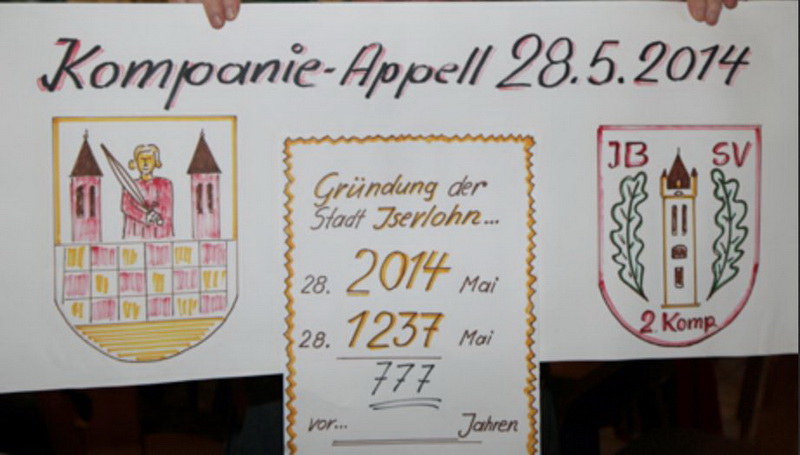 Kompanie-Appell 28.5.2014
Gründung der
Stadt Iserlohn...
28. 2014 Mai
28. 1237 Mai
777
vor... Jahren
JB SV
2. Komp